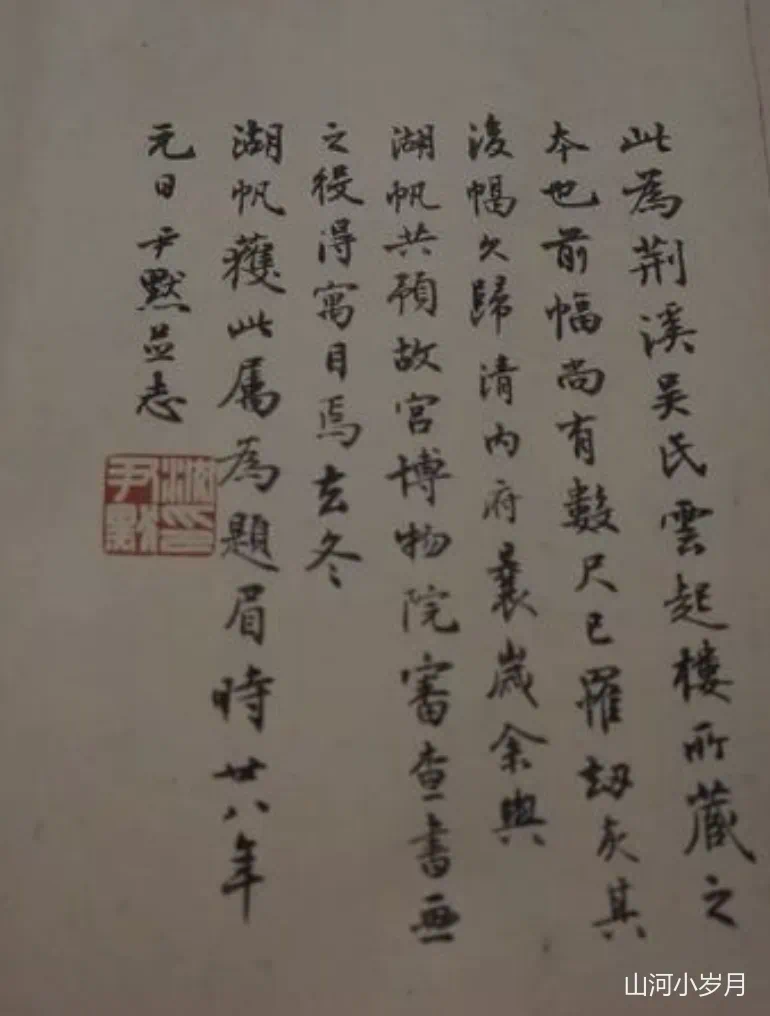 此為荆溪吴氏雲起樓所藏之
本也前幅尚有數尺已罹劫灰其
後幅久歸清内府曩歲余與
湖帆共預故宫博物院審查書画
之役得寓目焉去冬
湖帆獲此属為題眉時廿八年
元日尹默並志
沈尹默印
山河小岁月